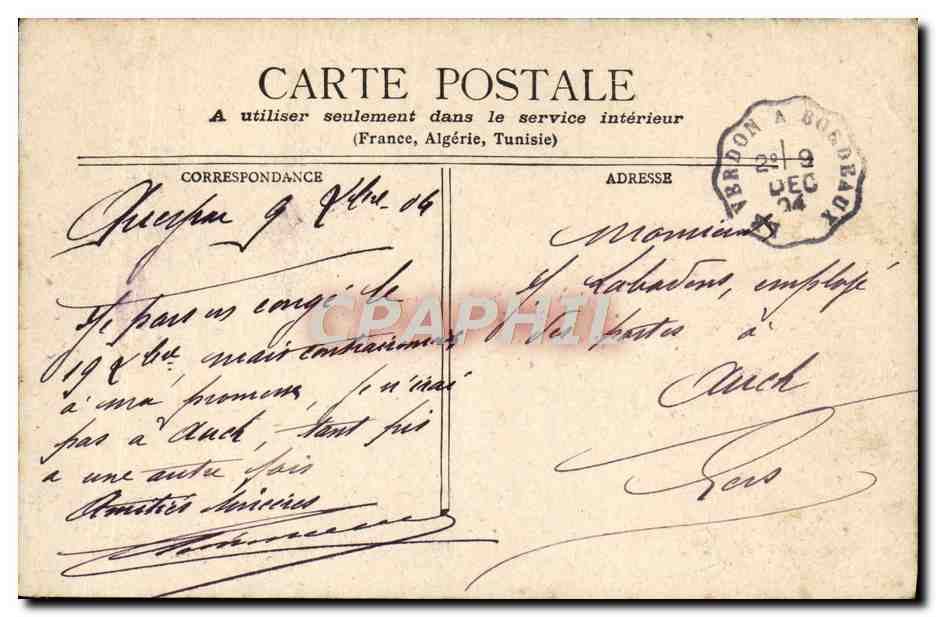 CARTE POSTALE
A utiliser seulement dans le service intérieur
(France, Algérie, Tunisie)
VERDON A BORDEAUX
2º 9
DEC
04
CORRESPONDANCE
9 Xbre 04
Je pars en congé le
19 Xbre, mais contrairement
à ma promesse, je n'irai
pas à Auch, tant pis
a une autre fois
Amitiés sincères
ADRESSE
Monsieur
Labadens, employé
des postes à
Auch
Gers
CPAPHIL